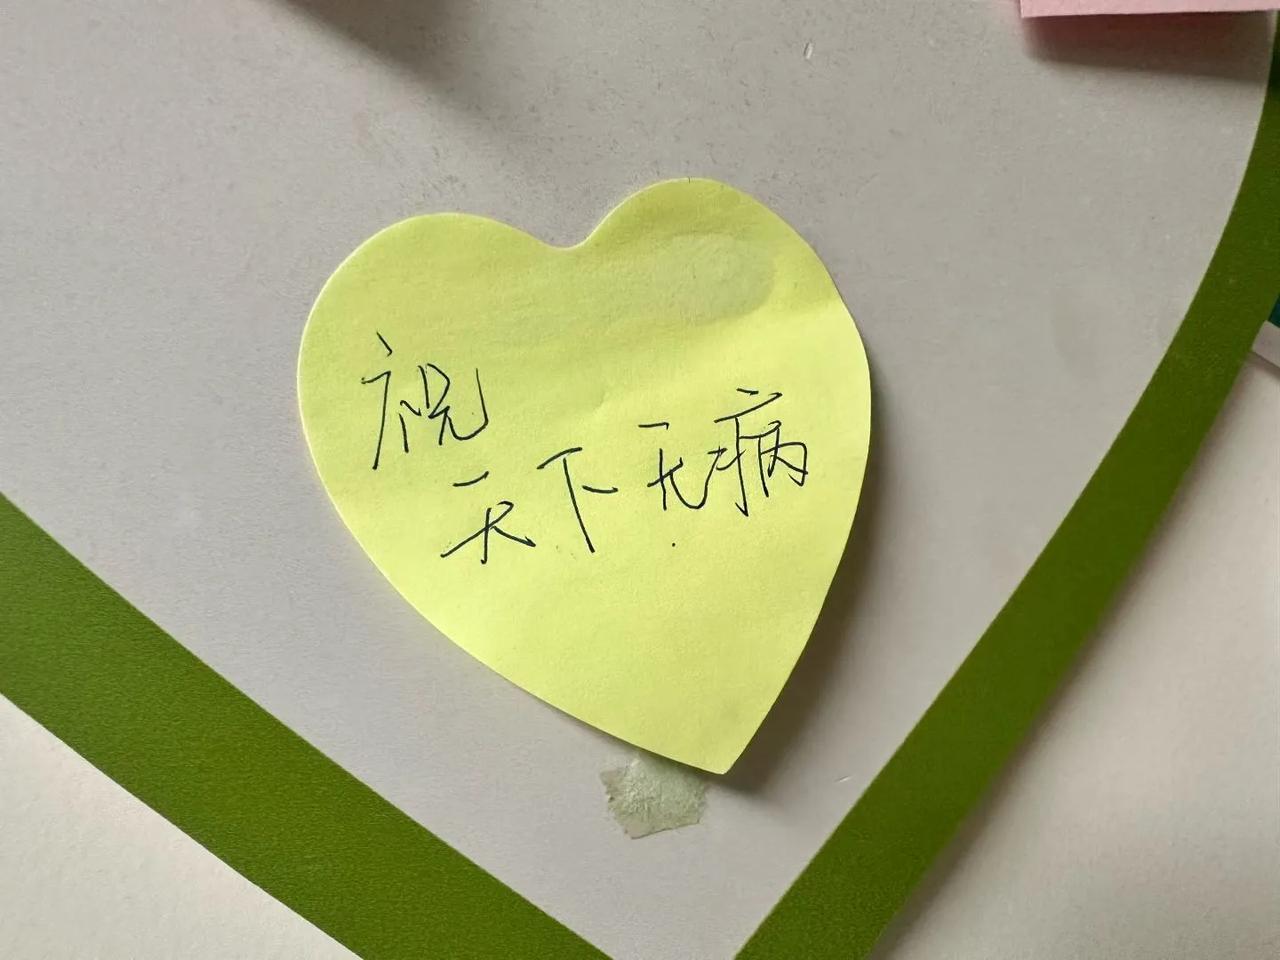 祝
天下无病